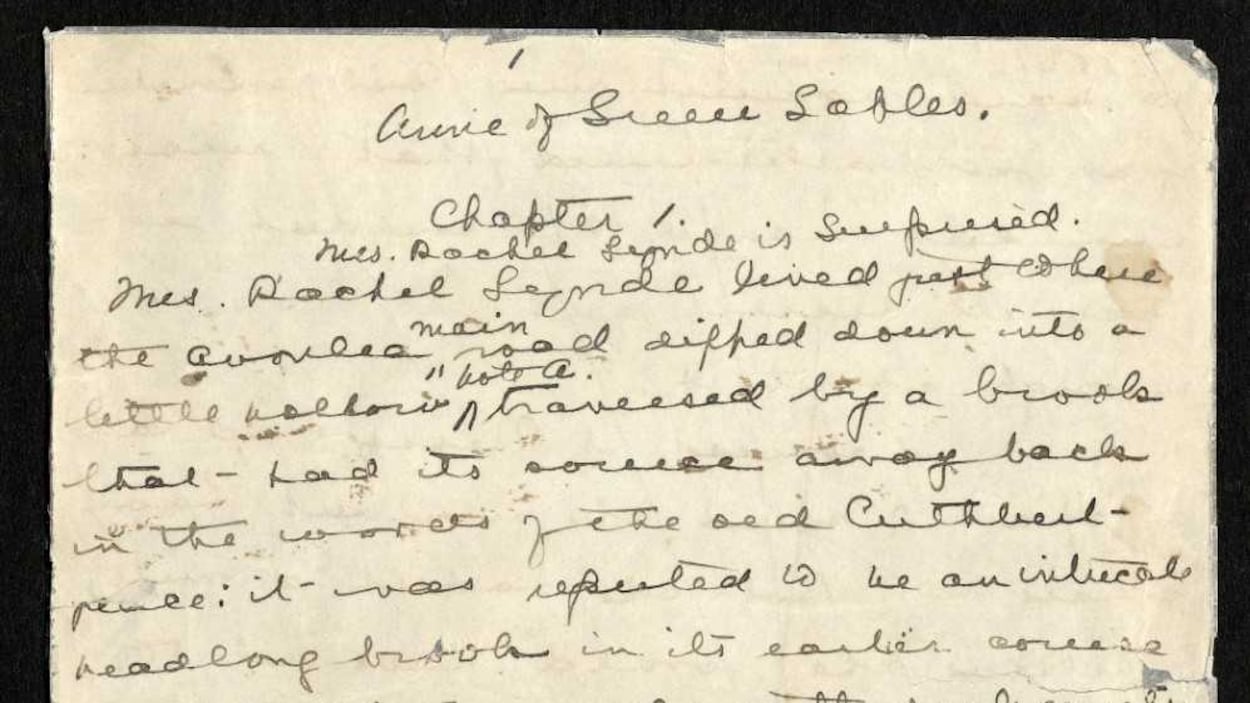 1
Anne of Green Gables.
Chapter 1.
Mrs. Rachel Lynde is Surprised.
Mrs. Rachel Lynde lived just where
main
the Avonlea road dipped down into a
" Note A.
little hollow traversed by a brook
that had its source away back
in the woods of the old Cuthbert
place: it was reputed to be an intricate
headlong brook in its earlier course